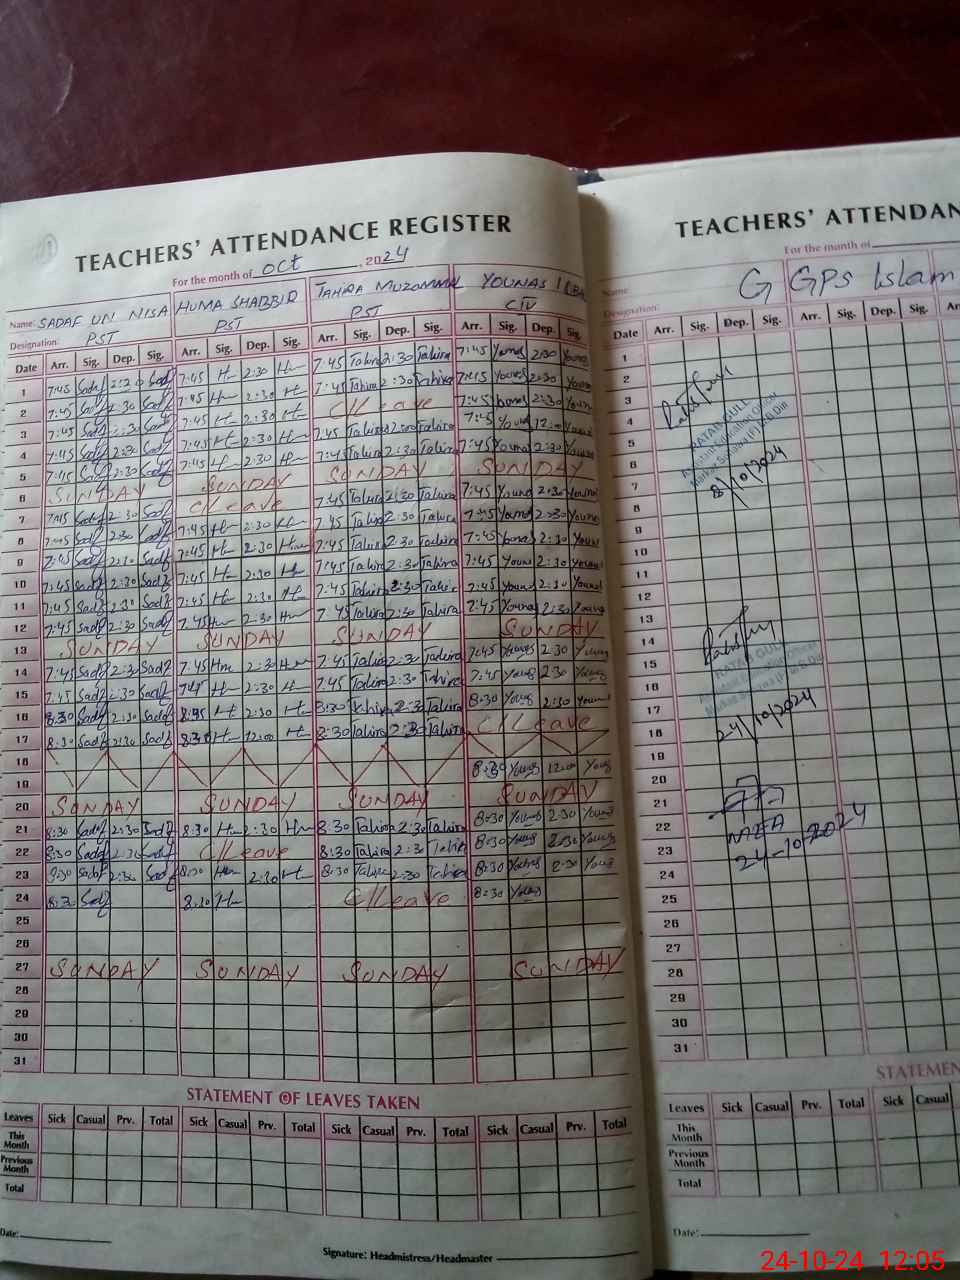 TEACHERS' ATTENDANCE REGISTER
For the month of OCT, 2024
Name: SADAF UN NISA HUMA SHABBIR TAHIRA MUZAMMAL YOUNAS IQBAL
Designation: PST PST PST CIV
Date Arr. Sig. Dep. Sig. Arr. Sig. Dep. Sig. Arr. Sig. Dep. Sig. Arr. Sig. Dep. Sig.
1 7:45 Sadf 2:30 Sadf 7:45 2:30 7:45 Tahira 2:30 Tahira 7:45 Younas 2:30 Younas
2 7:45 Sadf 2:30 Sadf 7:45 2:30 7:45 Tahira 2:30 Tahira 7:45 Younas 2:30 Younas
3 7:45 Sadf 2:30 Sadf 7:45 2:30 C/Leave 7:45 Younas 2:30 Younas
4 7:45 Sadf 2:30 Sadf 7:45 2:30 7:45 Tahira Tahira 7:45 Younas 12:00 Younas
5 7:45 Sadf 2:30 Sadf 7:45 2:30 7:45 Tahira 2:30 Tahira 7:45 Younas 2:30 Younas
6 SUNDAY SUNDAY SUNDAY SUNDAY
7 7:45 Sadf 2:30 Sadf C/Leave 7:45 Tahira 2:30 Tahira 7:45 Younas 2:30 Younas
8 7:45 Sadf 2:30 Sadf 7:45 2:30 7:45 Tahira 2:30 Tahira 7:45 Younas 2:30 Younas
9 7:45 Sadf 2:30 Sadf 7:45 2:30 7:45 Tahira 2:30 Tahira 7:45 Younas 2:30 Younas
10 7:45 Sadf 2:30 Sadf 7:45 2:30 7:45 Tahira 2:30 Tahira 7:45 Younas 2:30 Younas
11 7:45 Sadf 2:30 Sadf 7:45 2:30 7:45 Tahira 2:30 Tahira 7:45 Younas 2:30 Younas
12 7:45 Sadf 2:30 Sadf 7:45 2:30 7:45 Tahira 2:30 Tahira 7:45 Younas 2:30 Younas
13 SUNDAY SUNDAY SUNDAY SUNDAY
14 7:45 Sadf 2:30 Sadf 7:45 2:30 7:45 Tahira 2:30 Tahira 7:45 Younas 2:30 Younas
15 7:45 Sadf 2:30 Sadf 2:30 7:45 Tahira 2:30 Tahira 7:45 Younas 2:30 Younas
16 8:30 Sadf 2:30 Sadf 2:30 8:30 Tahira 2:30 Tahira 8:30 Younas 2:30 Younas
17 8:30 Sadf 2:30 Sadf 8:30 12:00 8:30 Tahira 2:30 Tahira C/Leave
18
19 8:30 Younas 12:00 Younas
20 SUNDAY SUNDAY SUNDAY SUNDAY
21 8:30 Sadf 2:30 Sadf 8:30 2:30 8:30 Tahira 2:30 Tahira 8:30 Younas 2:30 Younas
22 8:30 Sadf 2:30 Sadf C/Leave 8:30 Tahira 2:30 Tahira 8:30 Younas 2:30 Younas
23 8:30 Sadf 2:30 Sadf 8:30 2:30 8:30 Tahira 2:30 Tahira 8:30 Younas 2:30 Younas
24 8:30 Sadf 8:30 C/Leave 8:30 Younas
25
26
27 SUNDAY SUNDAY SUNDAY SUNDAY
28
29
30
31
STATEMENT OF LEAVES TAKEN
Leaves Sick Casual Prv. Total Sick Casual Prv. Total Sick Casual Prv. Total Sick Casual Prv. Total
This Month
Previous Month
Total
Date:
Signature: Headmistress/Headmaster
TEACHERS' ATTENDAN
For the month of
Name: G GPS Islam
Designation:
Date Arr. Sig. Dep. Sig. Arr. Sig. Dep. Sig.
1
2
3
4
5
6
7
8
9
10
11
12
13
14
15
16
17
18
19
20
21
22
23
24
25
26
27
28
29
30
31
RATAB GULL
Assistant Education Officer
8/10/2024
RATAB GULL
Assistant Education Officer
24/10/2024
MEA
24-10-2024
STATEMEN
Leaves Sick Casual Prv. Total Sick Casual
This Month
Previous Month
Total
Date:
24-10-24 12:05